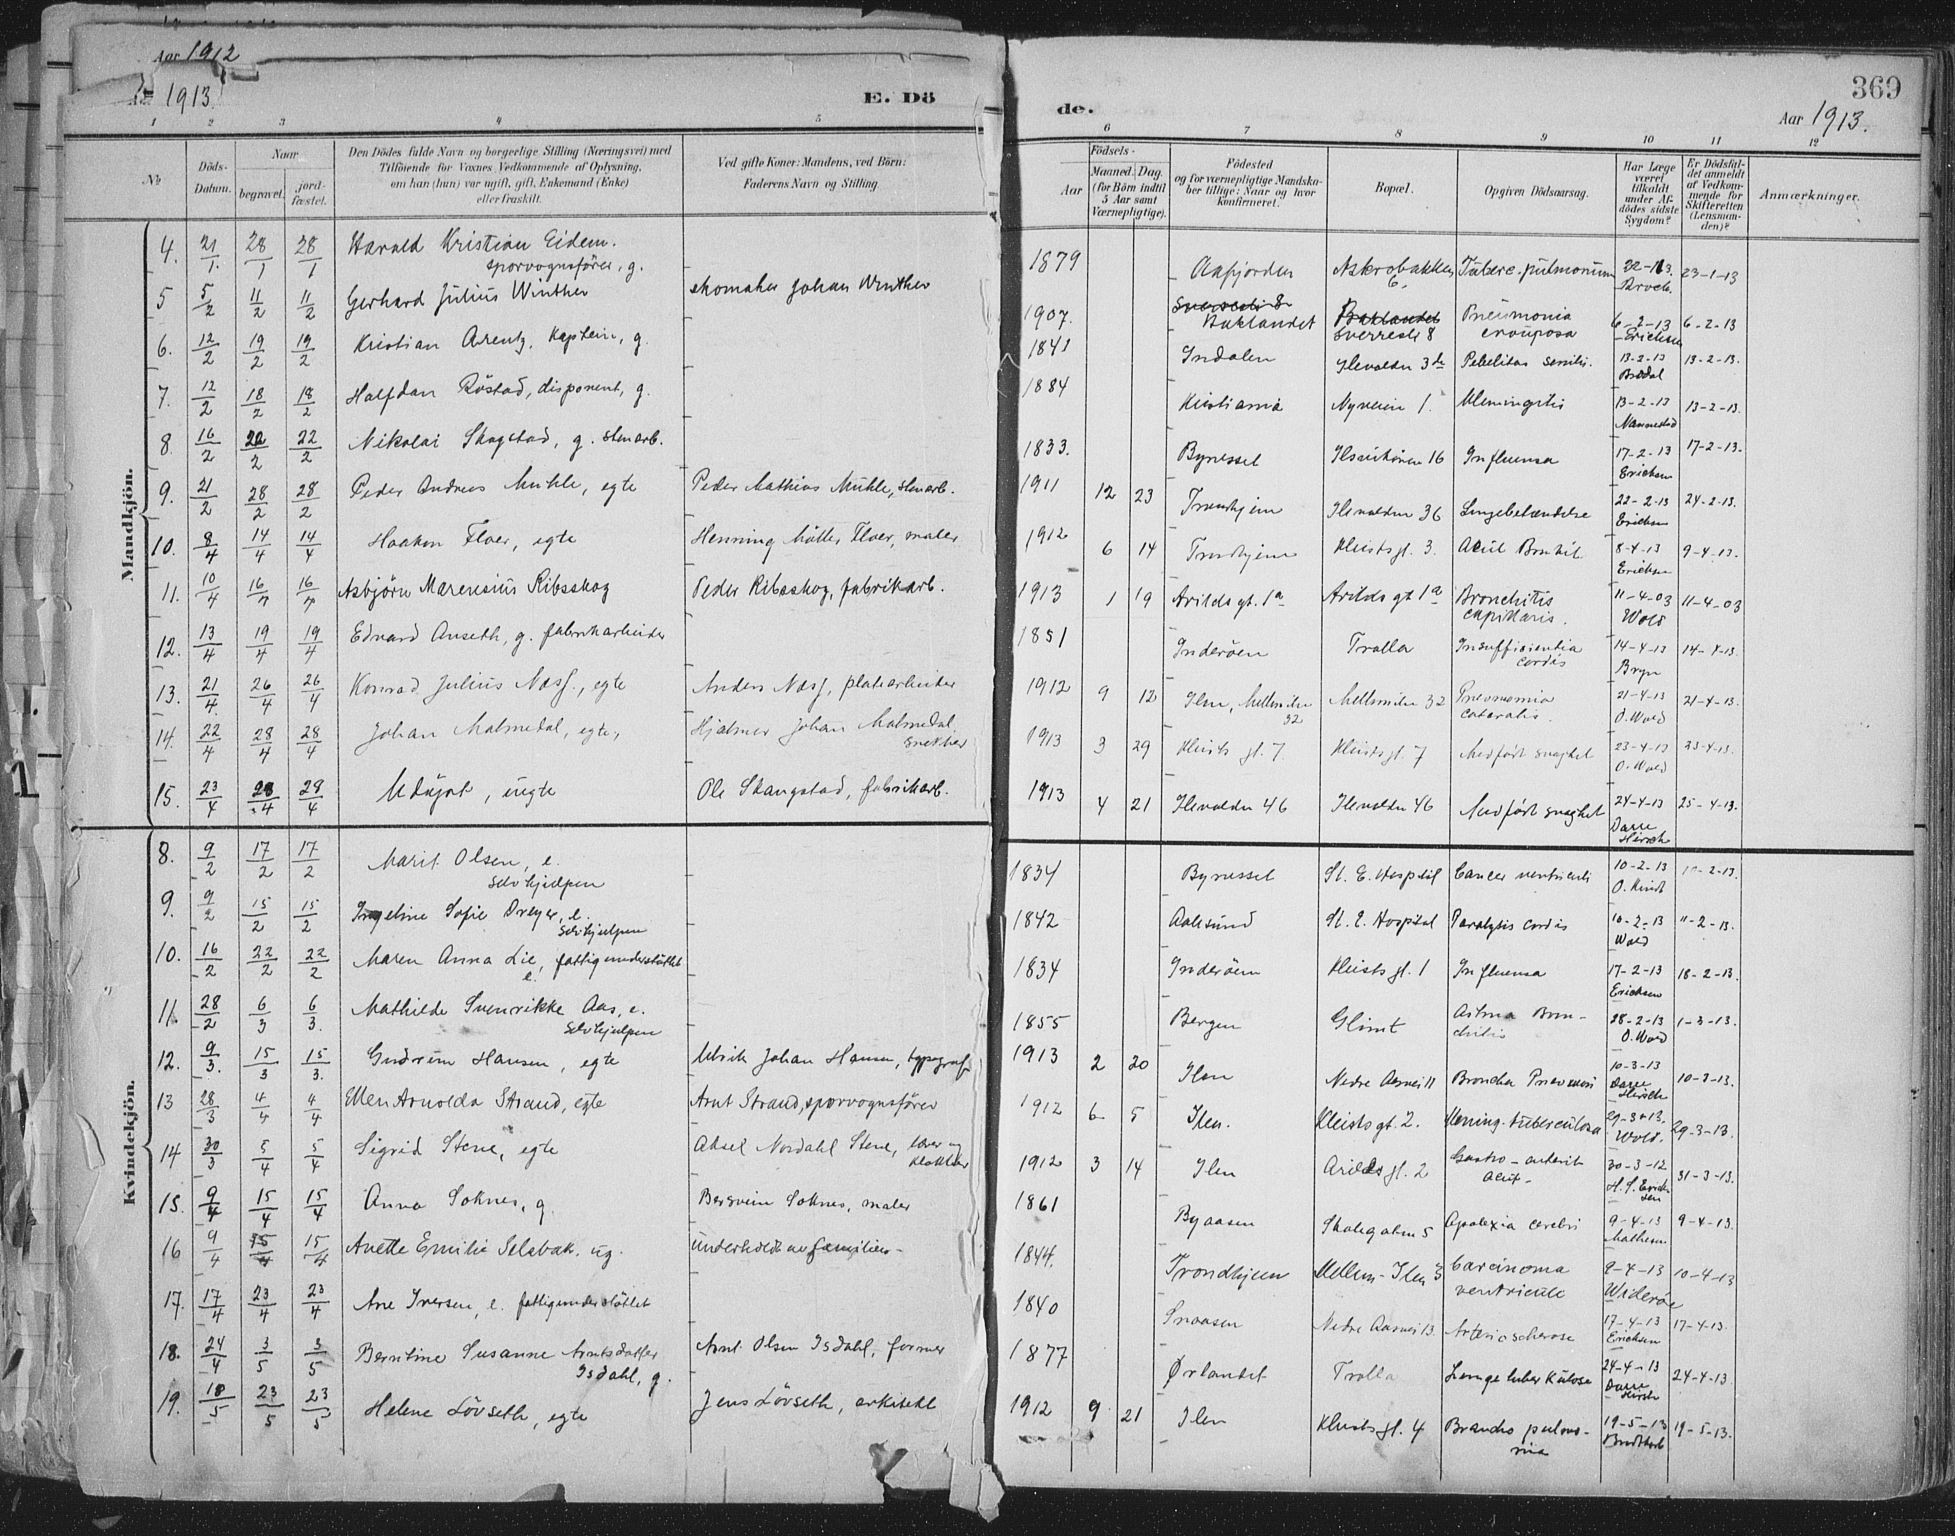 Aar 1912
1913.
E. Dö
de.
369
Aar 1913.
1 2 3 4 5 6 7 8 9 10 11 12
№
Döds-Datum.
Naar
begravet.
jord-fæstet.
Den Dödes fulde Navn og borgerlige Stilling (Næringsvei) med Tilföiende for Voxnes Vedkommende af Oplysning, om han (hun) var ugift, gift, Enkemand (Enke) eller fraskilt.
Ved gifte Koner: Mandens, ved Börn: Faderens Navn og Stilling.
Födsels-
Aar
Maaned. Dag.
(for Börn indtil 5 Aar samt Værnepligtige).
Födested og for værnepligtige Mandska-ber tillige: Naar og hvor konfirmeret.
Bopæl.
Opgiven Dödsaarsag.
Har Læge været tilkaldt under Af-dödes sidste Sygdom?
Er Dödsfal-det anmeldt af Vedkom-mende for Skifteretten (Lensman-den)?
Anmærkninger.
Mandkjön.
4. 21/1 28/1 28/1 Harald Kristian Eidem. sporvognsförer, g. 1879 Aafjorden Tuberc. pulmonum 23-1-13
5 5/2 11/2 11/2 Gerhard Julius Winther skomaker Johan Winther 1907. Baklandet Sverresgt 8 Pneumonia crouposa 6-2-13 Erichsen 6-2-13
6. 12/2 19/2 19/2 Kristian Arentz, Kaptein, g. 1841 Indalen Ilevolden 3 de 13-2-13 13-2-13.
7. 12/2 18/2 18/2 Halfdan Röstad, disponent, g. 1884 Kristiania Nyveien 1. Meningitis 13-2-13 Nannestad 13-2-13.
8. 16/2 22/2 22/2 Nikolai Skogstad, g. stenarb. 1833. Bynesset 16 Influensa 17-2-13 Erichsen 17-2-13.
9. 21/2 28/2 28/2 Peder Andreas Muhle, egte Peder Mathias Muhle, stenarb. 1911 12 23 Trondhjem Ilevolden 36 Lungebetændelse 22-2-13 Erichsen 24-2-13.
10. 8/4 14/4 14/4 Haakon Floer, egte Henning Möller Floer, maler 1912 6 14 Trondhjem Kleistsgt. 3. Acut Bronkit 8-4-13 Erichsen 9-4-13.
11. 10/4 16/4 16/4 Asbjörn Marensius Ribsskog Peder Ribsskog, fabrikarb. 1913 1 19 Arildsgt. 1a Arildsgt 1a Bronchitis capillaris. 11-4-03 Wold 11-4-03
12. 13/4 19/4 19/4 Edvard Anseth, g. fabrikarbeider 1851 Inderöen Trolla Insufficientia cordis 14-4-13 Bryn 14-4-13
13. 21/4 26/4 26/4 Konrad Julius Næss, egte Anders Næss, platearbeider 1912 9 12 Ilen, Mellemilen 32 Mellemilen 32 Pneumonia cataralis. 21-4-13 O. Wold 21-4-13.
14. 22/4 28/4 28/4 Johan Malmedal, egte, Hjalmar Johan Malmedal snekker 1913 3 29 Kleists gt. 7 Kleistsgt. 7 Medfödt svaghet 23-4-13 O. Wold 23-4-13.
15. 23/4 28/4 28/4 Udöpt, uegte Ole Skaugstad, fabrikarb. 1913 4 21 Ilevolden 46 Ilevolden 46 Medfödt svaghet 24-4-13 Darre Hirsch 25-4-13.
Kvindekjön.
8. 9/2 17/2 17/2 Marit Olsen, e. Selvhjelpen 1834 Bynesset St. E. Hospital Cancer ventriculi 10-2-13
9. 9/2 15/2 15/2 Ingeline Sofie Dreyer, e. Selvhjelpen 1842 Aalesund St. E. Hospital Paralysis cordis 10-2-13 Wold 11-2-13.
10. 16/2 22/2 22/2 Maren Anna Lie, e. fattigunderstöttet 1834 Inderöen Kleistsgt. 1 Influensa 17-2-13 Erichsen 18-2-13.
11. 28/2 6/3 6/3. Mathilde Svenrikke Aas, e. Selvhjelpen 1855 Bergen Glimt Astma Bronchitis 28-2-13 O. Wold 1-3-13.
12. 9/3. 15/3 15/3. Gudrun Hansen, egte Ulrik Johan Hansen, typograf 1913 2 20 Ilen 10-3-13 Darre Hirsch 10-3-13.
13 28/3 4/4 4/4 Ellen Arnolda Strand, egte Arnt Strand, sporvognsförer 1912 6 5 Ilen. Kleistsgt. 2. Mening. tuberculosa 29-3-13. Wold. 29-3-13.
14 30/3 5/4 5/4 Sigrid Stene, egte Aksel Nordahl Stene, lærer og klokker 1912 3 14 Ilen Arildsgt. 2 Gastro-enterit acut- 30-3-12 H. S. Erichsen 31-3-13.
15. 9/4 15/4 15/4 Anna Soknes, g Bersvein Soknes, maler 1861 Byaasen Skolegaten 5 Apolexia cerebri 9-4-13 9-4-13.
16 9/4 15/4 15/4 Anette Emilie Selsbak. ug. underholdt av familien- 1844. Trondhjem Mellem-Ilen 3 Carcinoma ventricule 9-4-13 Wideröe 10-4-13
17. 17/4 23/4 23/4 Ane Iversen, e. fattigunderstöttet 1840 Snaasen Arterioscherose 17-4-13 Erichsen 17-4-13.
18. 24/4 3/5 3/5 Berntine Susanne Arntsdatter Isdahl, g. Arnt Olsen Isdahl, former 1877 Ørlandet Trolla Lungetuberkulose 24-4-13 Darre Hirsch 24-4-13
19. 18/5 23/5 23/5 Helene Lövseth, egte Jens Lövseth, arkitekt 1912 9 21 Ilen Kleistsgt. 4 19-5-13 19-5-13.